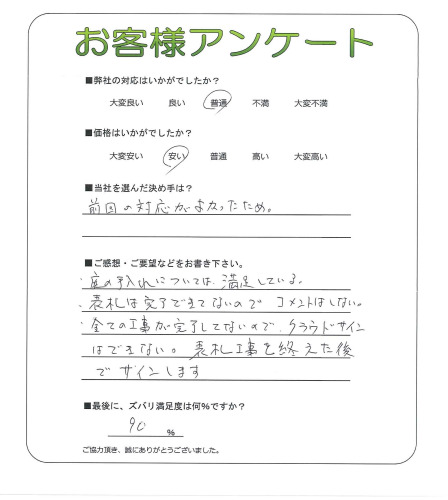 お客様アンケート
■弊社の対応はいかがでしたか？
大変良い　良い　普通　不満　大変不満
■価格はいかがでしたか？
大変安い　安い　普通　高い　大変高い
■当社を選んだ決め手は？
前回の対応がよかったため。
■ご感想・ご要望などをお書き下さい。
・庭の手入れについては、満足している。
・表札は完了できてないので コメントはしない。
・全ての工事が完了してないので、クラウドサイン
はできない。表札工事を終えた後
でサインします
■最後に、ズバリ満足度は何%ですか？
90 %
ご協力頂き、誠にありがとうございました。